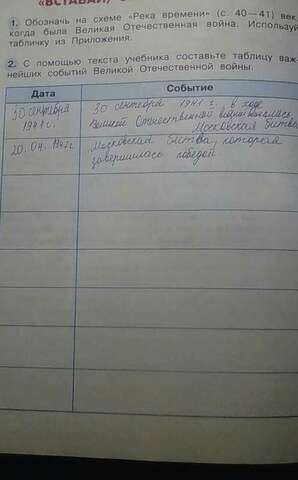 «ВСТАВАЙ,
1. Обозначь на схеме «Река времени» (с. 40—41) век,
когда была Великая Отечественная война. Используй
табличку из Приложения.
2. С помощью текста учебника составьте таблицу важ-
нейших событий Великой Отечественной войны.
Дата Событие
30 сентября 30 сентября 1941 г., в ходе
1941 г. Великой Отечественной войны началась
Московская битва
20.04.1942г. Московская битва, которая
завершилась победой